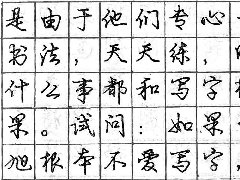 是由于他们专心
书法，天天练，
什么事都和写字
果。试问：如果
旭根本不爱写字，